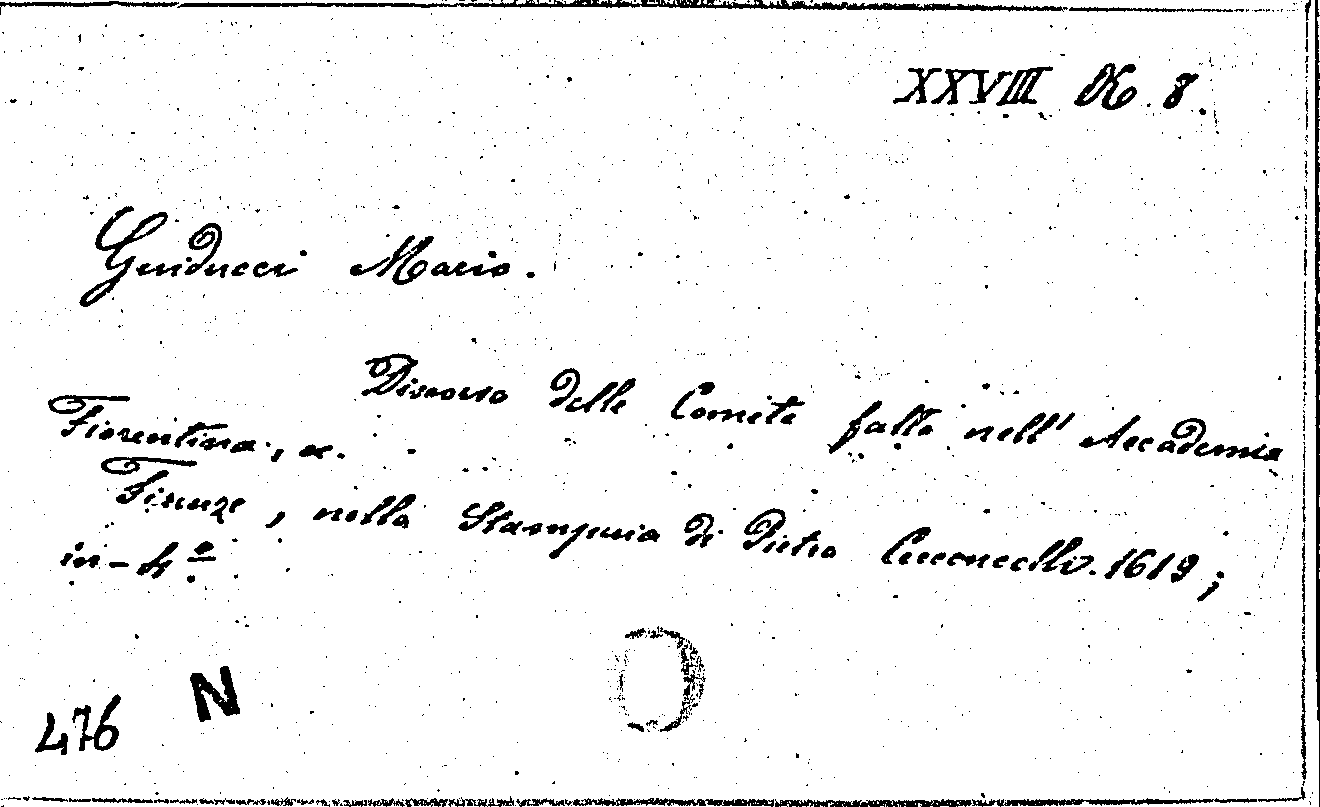 XXVIII K. 8.
Guiducci Mario.
Discorso delle Comete fatto nell' Accademia
Fiorentina, &.
Firenze, nella Stamperia di Pietro Cecconcelli. 1619;
in-4º
476 N